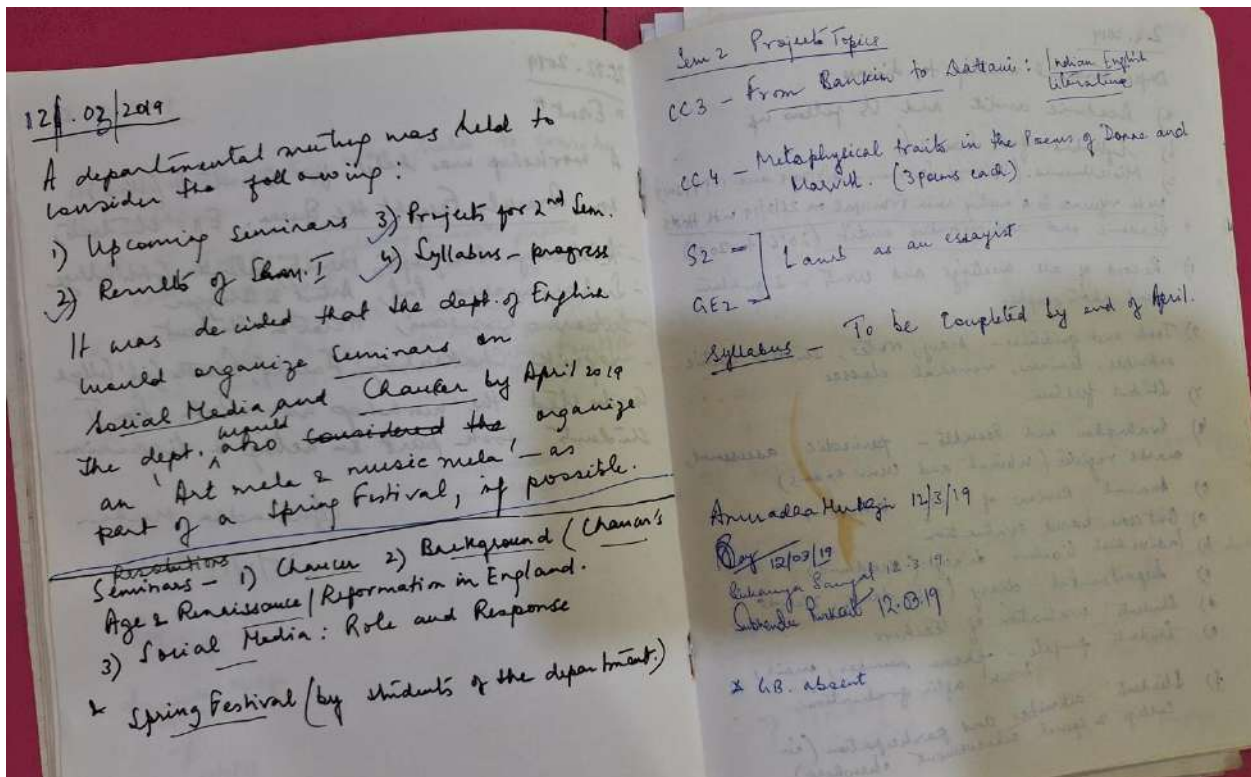 12.03/2019
A departmental meeting was held to
consider the following:
1) Upcoming Seminars 3) Projects for 2nd Sem.
2) Results of Sem. I 4) Syllabus – progress
It was decided that the dept. of English
would organize Seminars on
Social Media and Chaucer by April 2019
The dept. would also considered the organize
an 'Art mela & music mela' – as
part of a Spring Festival, if possible.
Resolutions
Seminars – 1) Chaucer 2) Background (Chaucer's
Age & Renaissance/Reformation in England.
3) Social Media: Role and Response
* Spring Festival (by students of the department.)
Sem 2 Projects Topics
CC3 – From Bankim to Dattani: Indian English
Literature
CC4 – Metaphysical traits in the Poems of Donne and
Marvell. (3 poems each)
S2 –
Lamb as an essayist
GE2 –
Syllabus – To be completed by end of April.
Anuradha Mukherji 12/3/19
Ray 12/03/19
Sanyal 12.3.19.
Subhendu Purkait 12.03.19
* G.B. absent